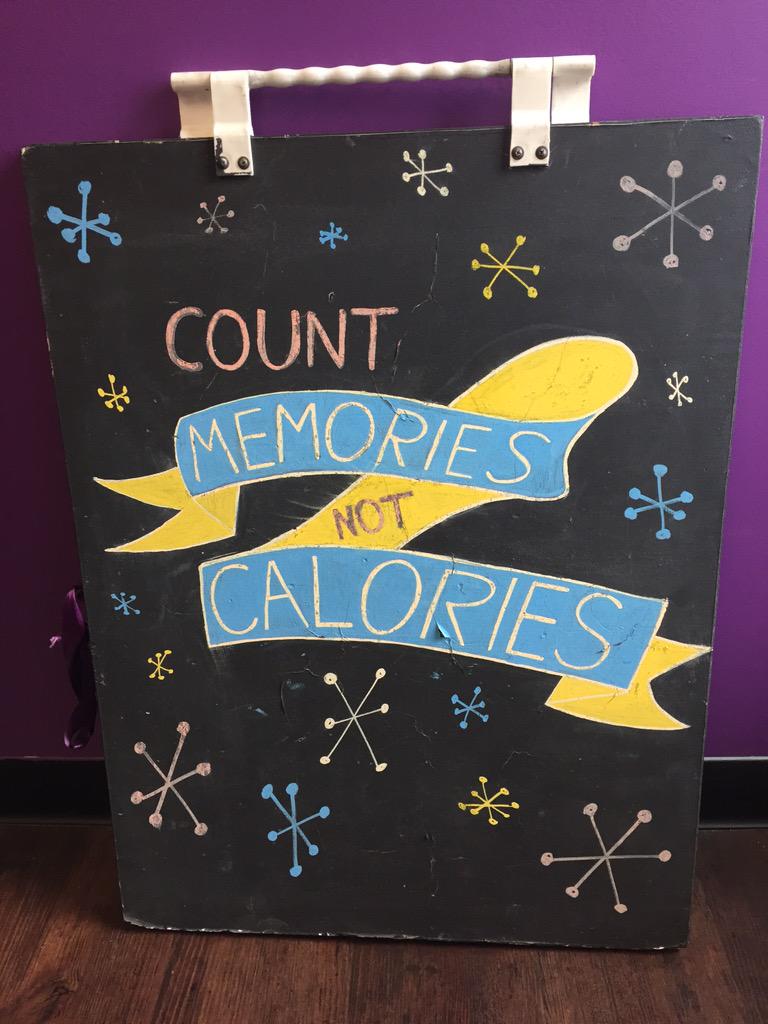 COUNT
MEMORIES
NOT
CALORIES